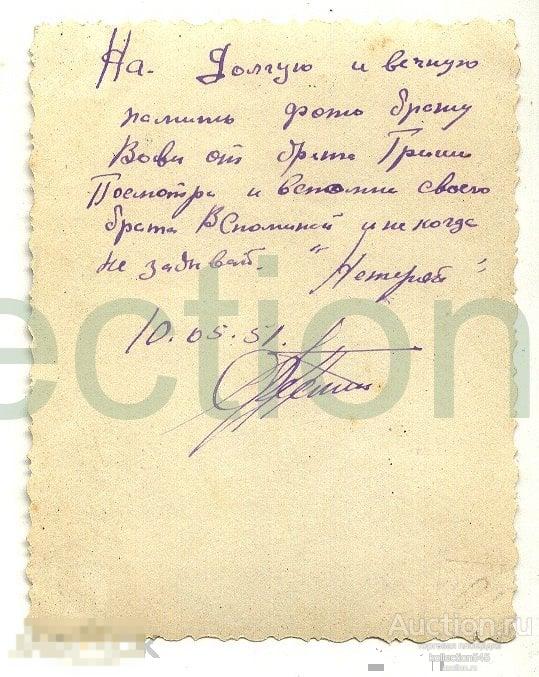 На Долгую и вечную
память фото брату
Вови от брата Гриши
Посмотри и вспомни своего
брата Вспоминай и не когда
не забывай. "Не теряй"
10.05.51.
ection
Auction.ru
торговая площадка
kollection545
auction.ru